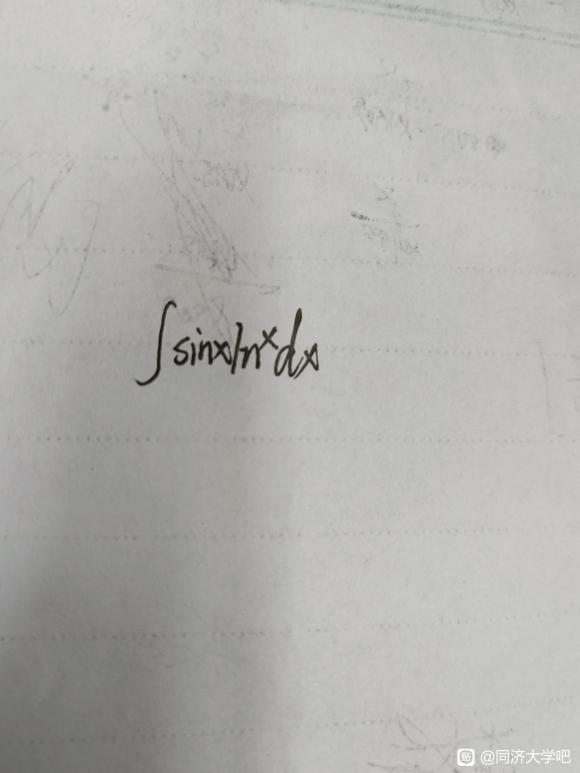 ∫sinxlnˣdx
贴 @同济大学吧